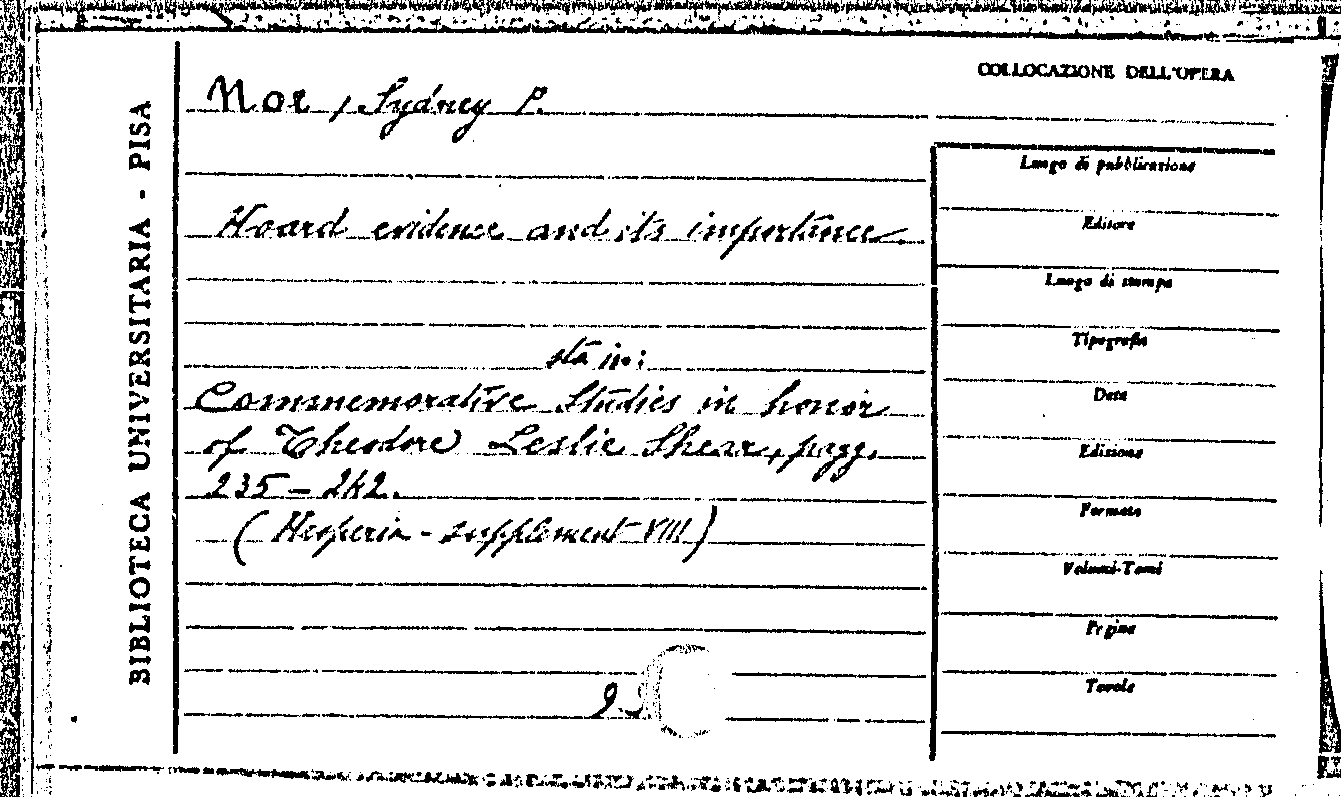 BIBLIOTECA UNIVERSITARIA - PISA
COLLOCAZIONE DELL'OPERA
Noe, Sydney P.
Hoard evidence and its importance.
sta in:
Commemorative Studies in honor
of Theodore Leslie Shear, pagg.
235 - 242.
(Hesperia - supplement VIII)
9
Luogo di pubblicazione
Editore
Luogo di stampa
Tipografia
Data
Edizione
Formato
Volumi-Tomi
Pagine
Tavole